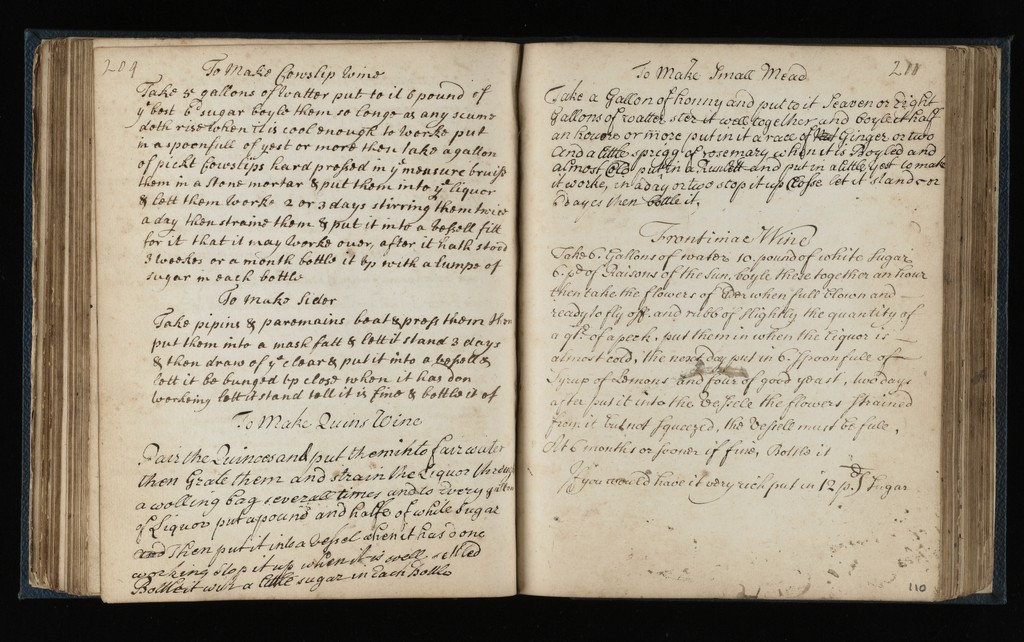 209
To Make Cowslip Wine
Take 5 gallons of Watter put to it 6 pound of
yͤ best 6ᵈ sugar boyle them so longe as any scume
doth rise when it is cool enough to worke put
in a spoonfull of yest or more then take a gallon
of pickt Cowslips hard pressed in yͤ measure bruise
them in a stone mortar & put them into yͤ liquor
& lett them worke 2 or 3 days stirring them twice
a day then straine them & put it into a vessell fitt
for it that it may worke over, after it hath stood
3 weekes or a month bottle it up with a lumpe of
sugar in each bottle
To Make Sider
Take pipins & paremains beat & press them then
put them into a mash fatt & lett it stand 3 days
& then draw of yͤ clear & put it into a vessell &
lett it be bunged up close when it has don
workeing lett it stand tell it is fine & bottle it of
To Make Quins Wine
Pair the Quinces and put them into fair water
then Grate them and strain the Liquor through
a wolling bag severall times and to every gallon
of Liquor put a pound and halfe of white Sugar
and Then put it into a vessel when it has done
working stop it up when it is well setled
Bottle it with a little sugar in Each Bottle
211
To Make Small Mead
Take a Gallon of honny and put to it Seaven or Eight
gallons of watter ster it well together and boyle it half
an houre or more put in it a race of Ginger or two
and a little sprigg of rosemary when it is Boyled and
almost Cold put in a Runlett and put in a little yest to make
it worke, in a day or two stop it up Closse let it stand
dayes then bottle it.
Frontiniac Wine
Take 6. Gallons of water 10. pound of white Sugar
6. pᵈ of Raisons of the Sun, boyle these together an hour
then take the flowers of Elder when full blown and
ready to fly off and rubb of slightly the quantity of
a qʳᵗ of a peck. put them in when the liquor is
almost cold, the next day put in 6. spoonfulls of
Syrup of Lemons and four of good yeast, two days
after put it into the vessele the flowers strained
from it but not squeezed, the vessell must be full.
At 6 months or sooner if fine, Bottle it
If you would have it very rich put in 12 pᵈ of Sugar
110